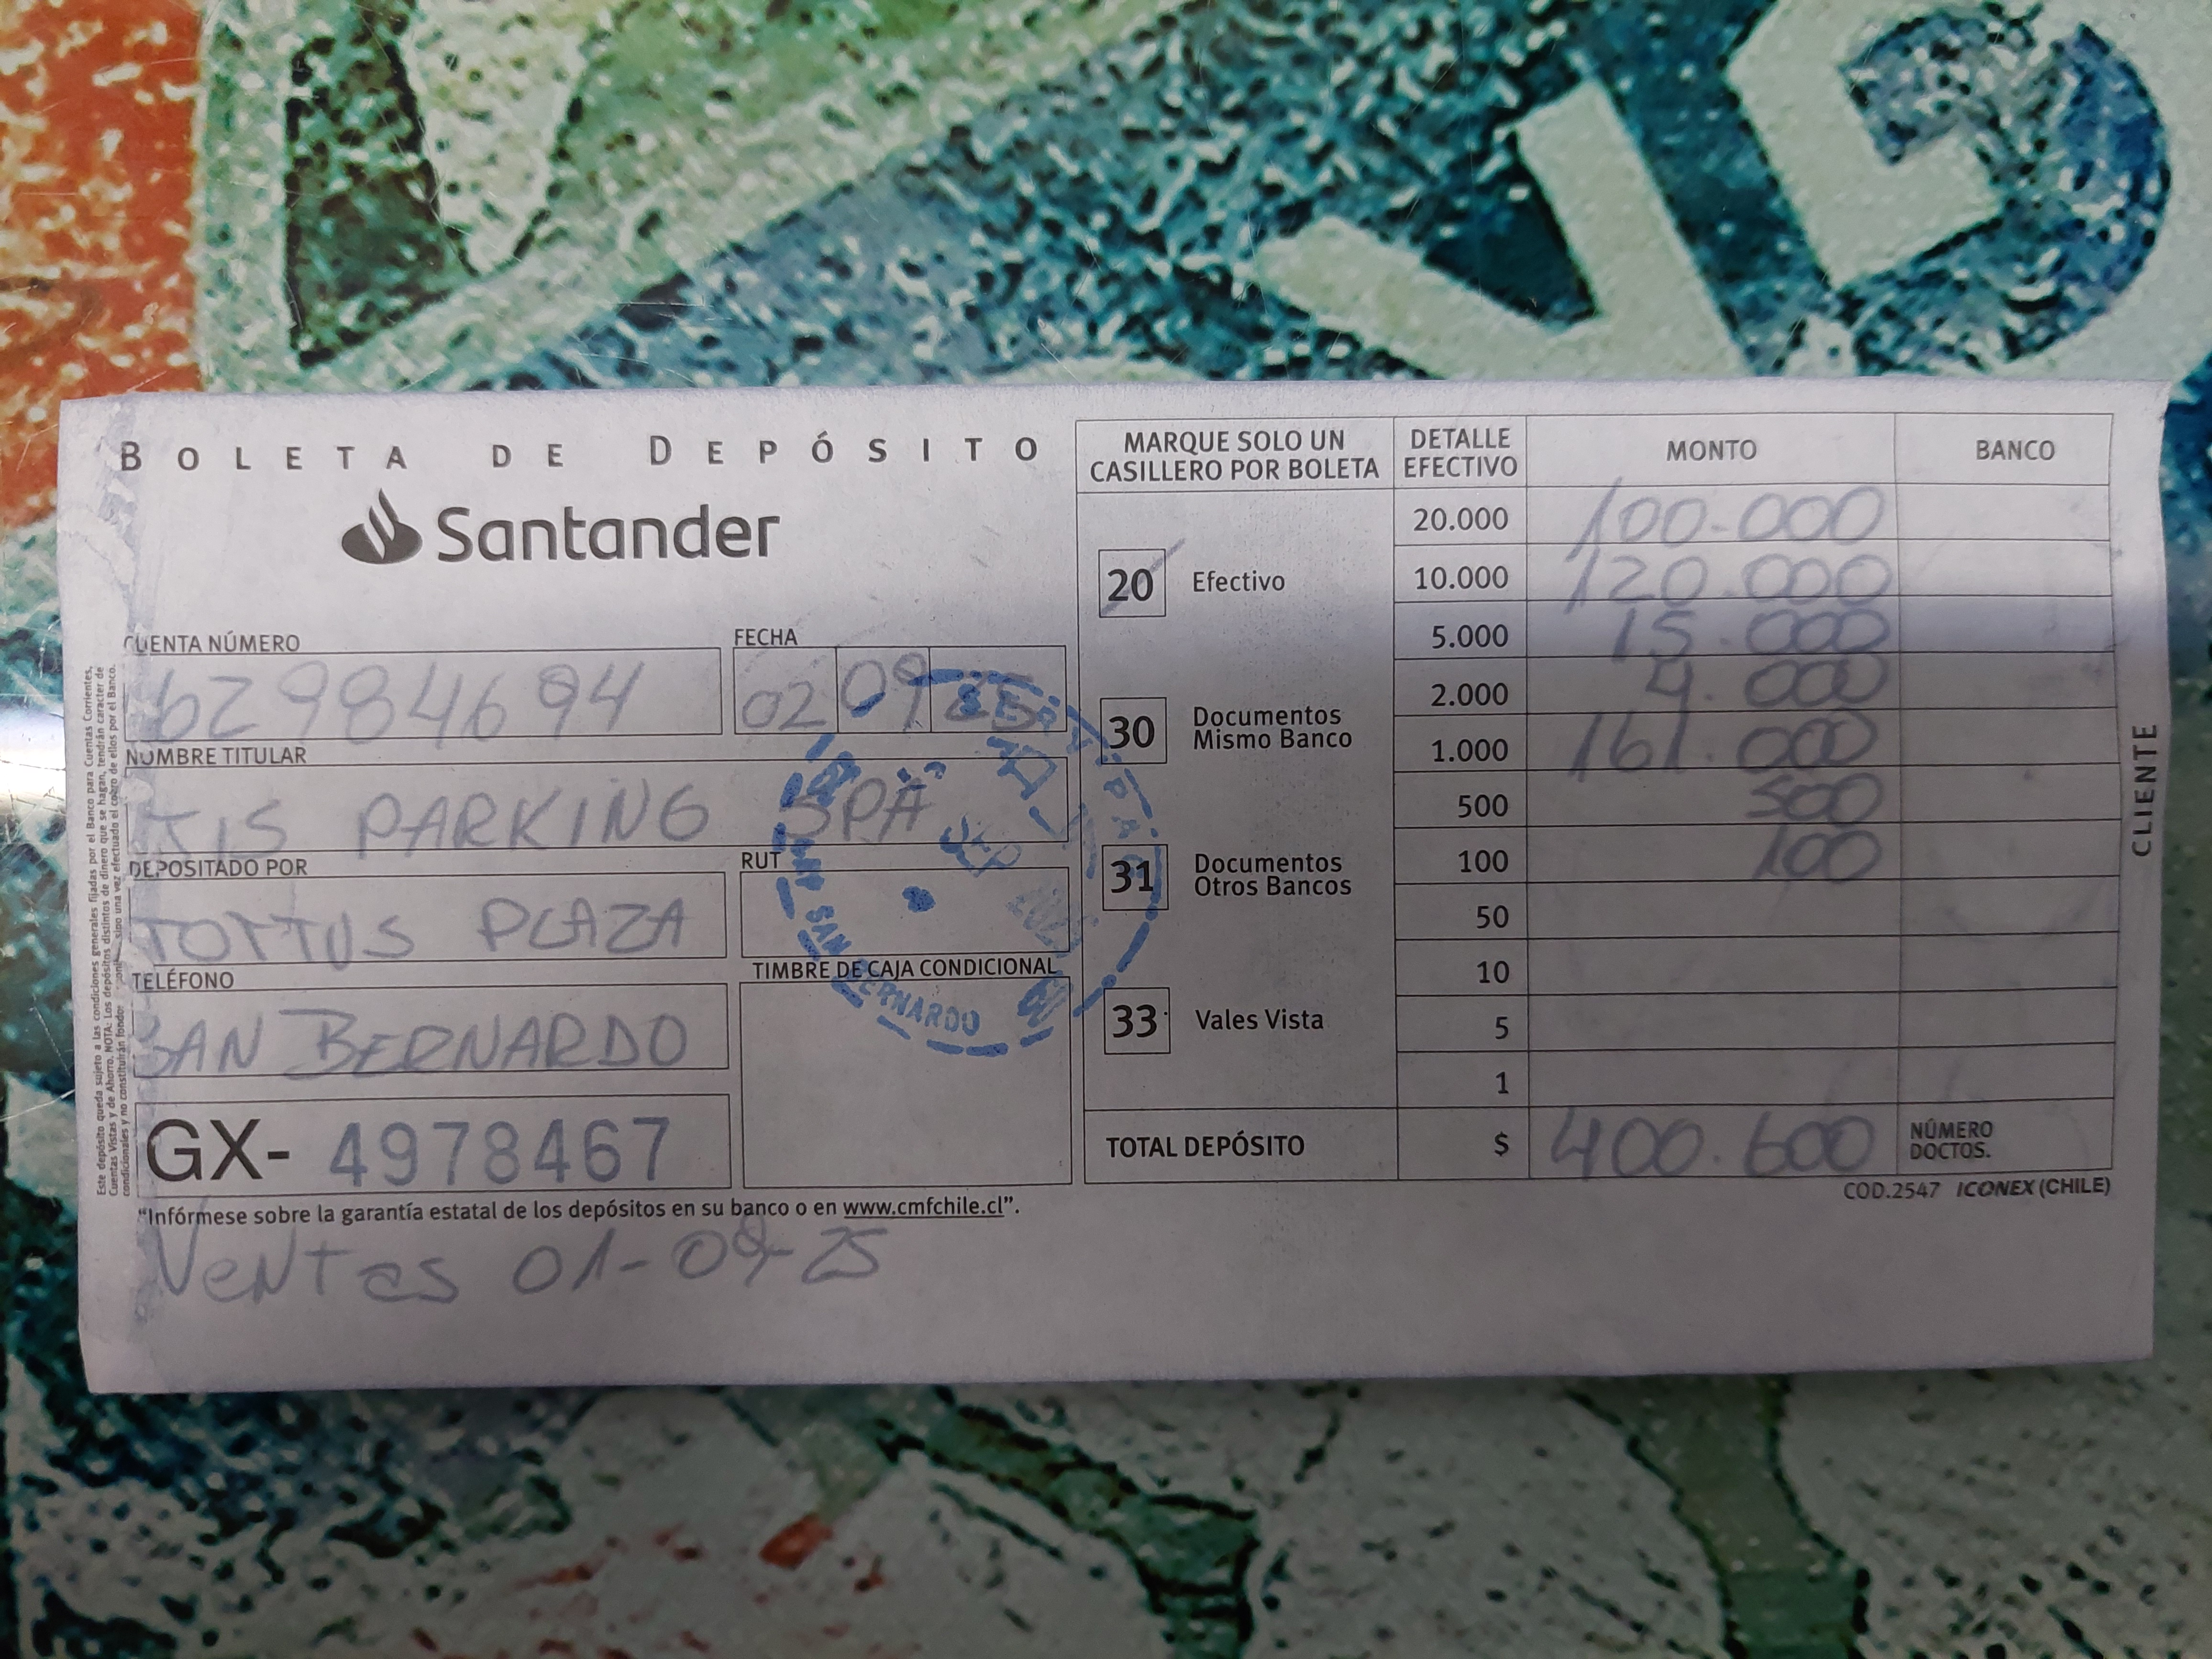 BOLETA DE DEPÓSITO
Santander
CUENTA NÚMERO
62984694
FECHA
02 09 25
NOMBRE TITULAR
PARKING SPA
DEPOSITADO POR
TOTTUS PLAZA
RUT
TELÉFONO
SAN BERNARDO
TIMBRE DE CAJA CONDICIONAL
GX- 4978467
"Infórmese sobre la garantía estatal de los depósitos en su banco o en www.cmfchile.cl".
Ventas 01-09-25
Este depósito queda sujeto a las condiciones generales fijadas por el Banco para Cuentas Corrientes,
Cuentas Vistas y de Ahorro. NOTA: Los depósitos distintos de dinero que se hagan, tendrán carácter de
condicionales y no constituirán fondos sino una vez efectuado el cobro de ellos por el Banco.
SAN BERNARDO
SEP 2025
MARQUE SOLO UN
CASILLERO POR BOLETA
20 Efectivo
30 Documentos
Mismo Banco
31 Documentos
Otros Bancos
33 Vales Vista
DETALLE
EFECTIVO
MONTO
BANCO
20.000 100.000
10.000 120.000
5.000 15.000
2.000 4.000
1.000 161.000
500 500
100 100
50
10
5
1
TOTAL DEPÓSITO $ 400.600
NÚMERO
DOCTOS.
COD.2547 ICONEX (CHILE)
CLIENTE